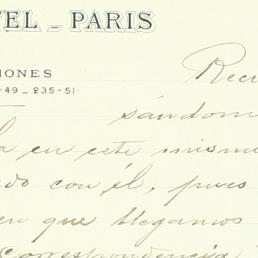 TEL - PARIS
IONES
-49 - 235-51
Reci
sándome
a en este mismo
do con él, pues
en que llegamos
Correspondencia